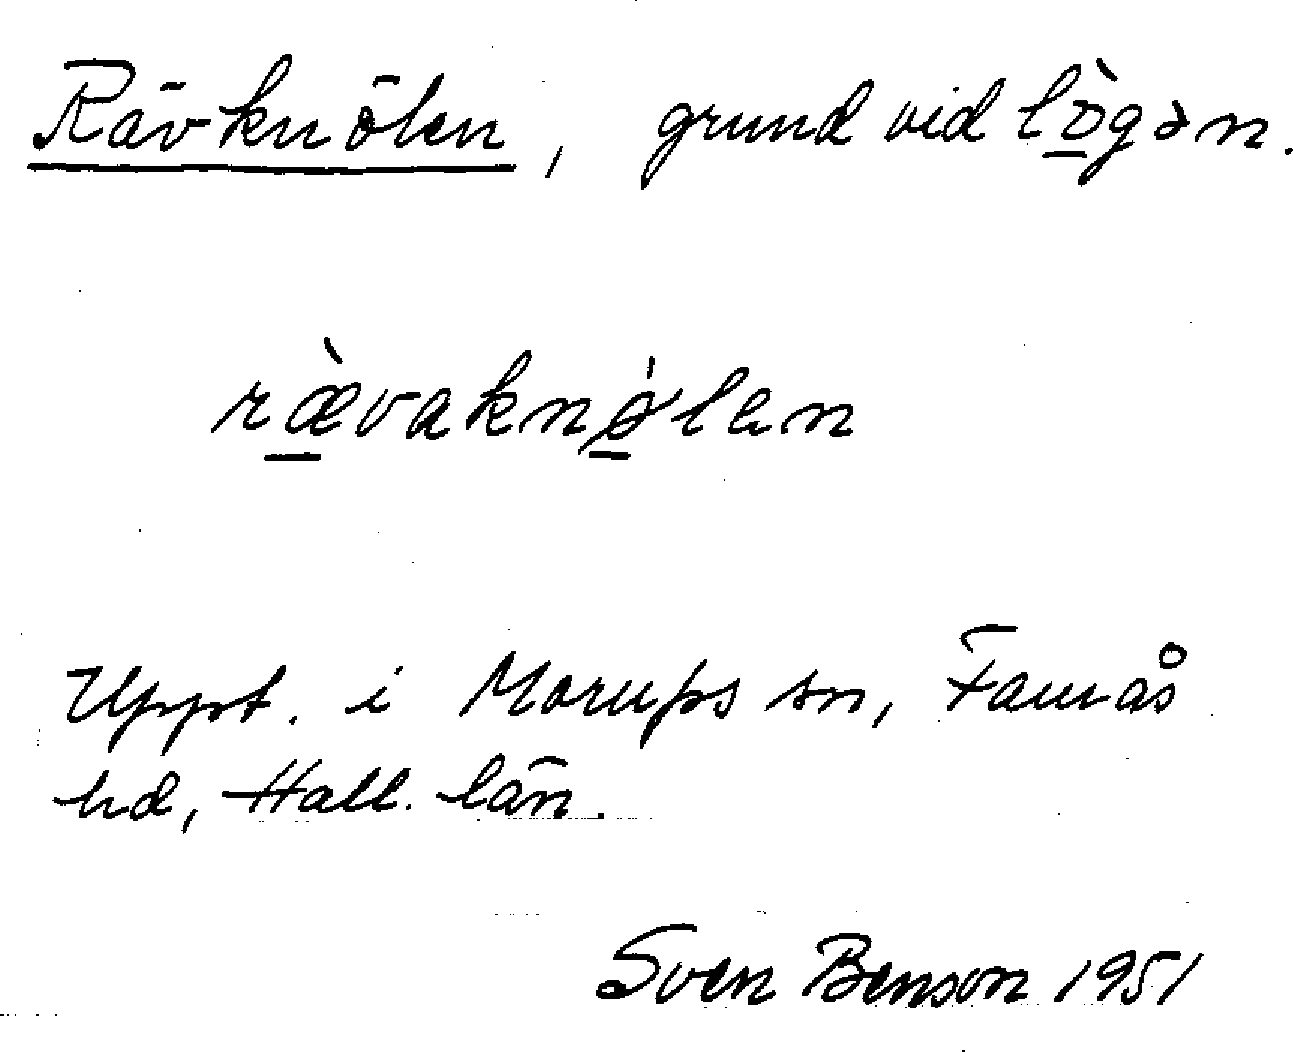 Rävknölen, grund vid lò̲gən.
ræ̲̀vaknø̲̍len
Uppt. i Morups sn, Faurås
hd, Hall. län.
Sven Benson 1951